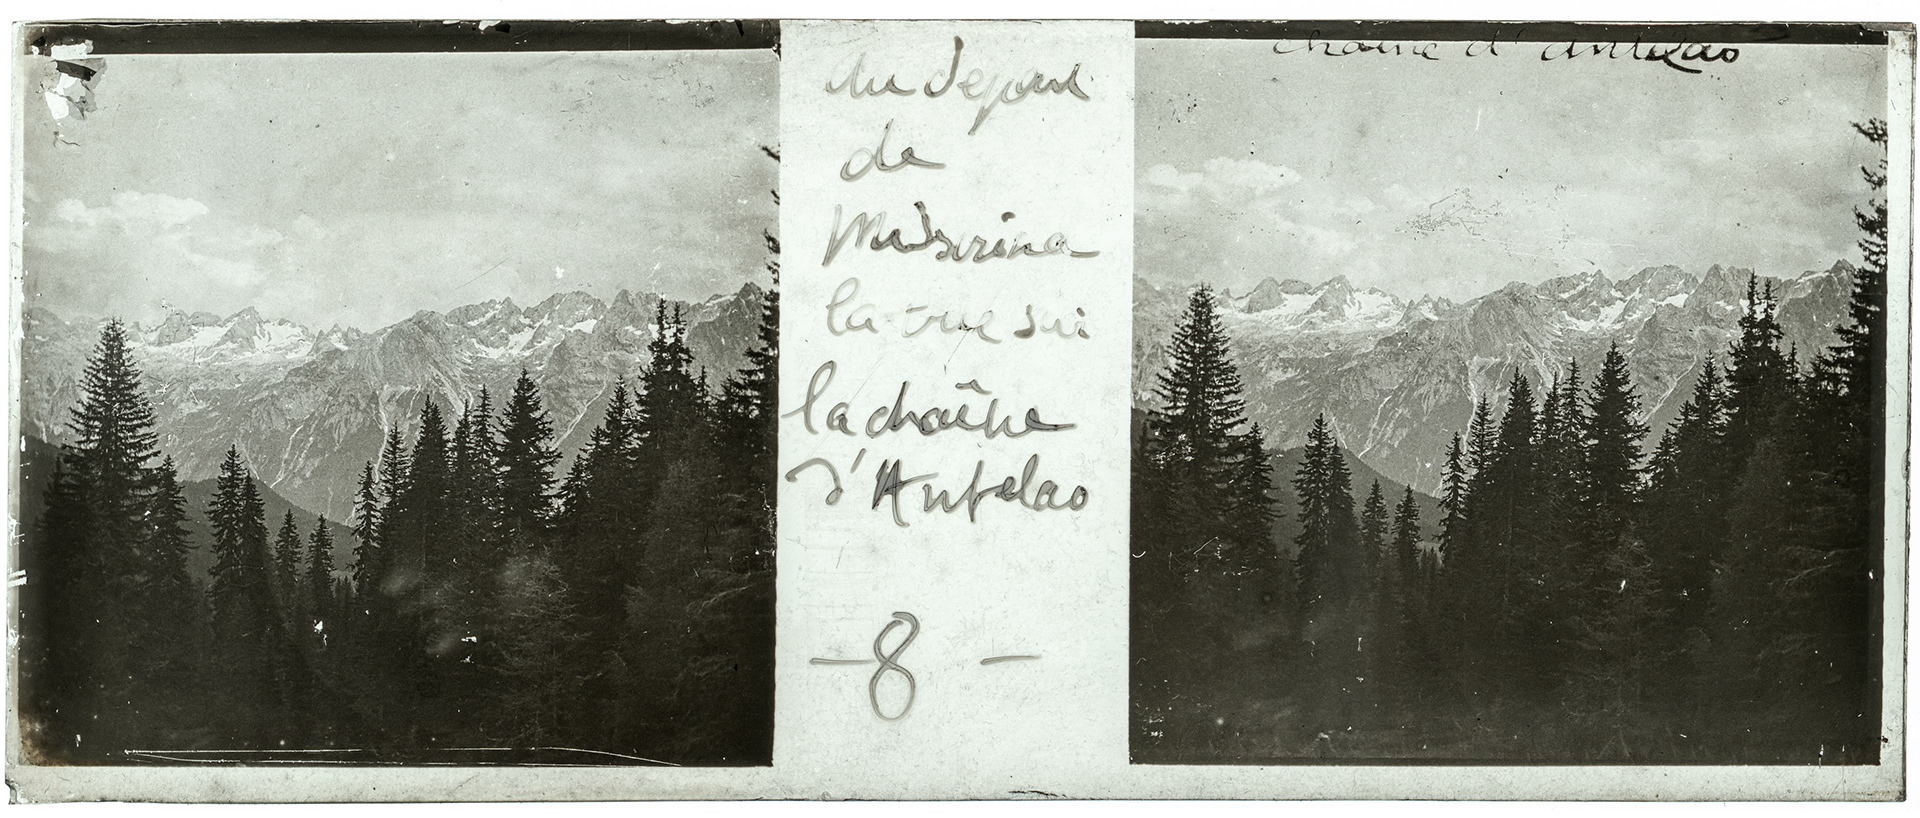 au depart
de
Misurina
la vue sur
la chaîne
d'Antelao
- 8 -
chaine d'Antelao